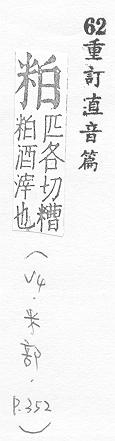 62重訂直音篇
粕匹各切糟
粕酒滓也
(V4.米部.P.352)